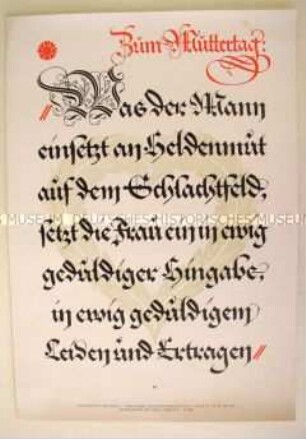 Zum Muttertag:
"Was der Mann
einsetzt an Heldenmut
auf dem Schlachtfeld,
setzt die Frau ein in ewig
geduldiger Hingabe,
in ewig geduldigem
Leiden und Ertragen"
MUSEUM DEUTSCHES HISTORISCHES MUSEUM